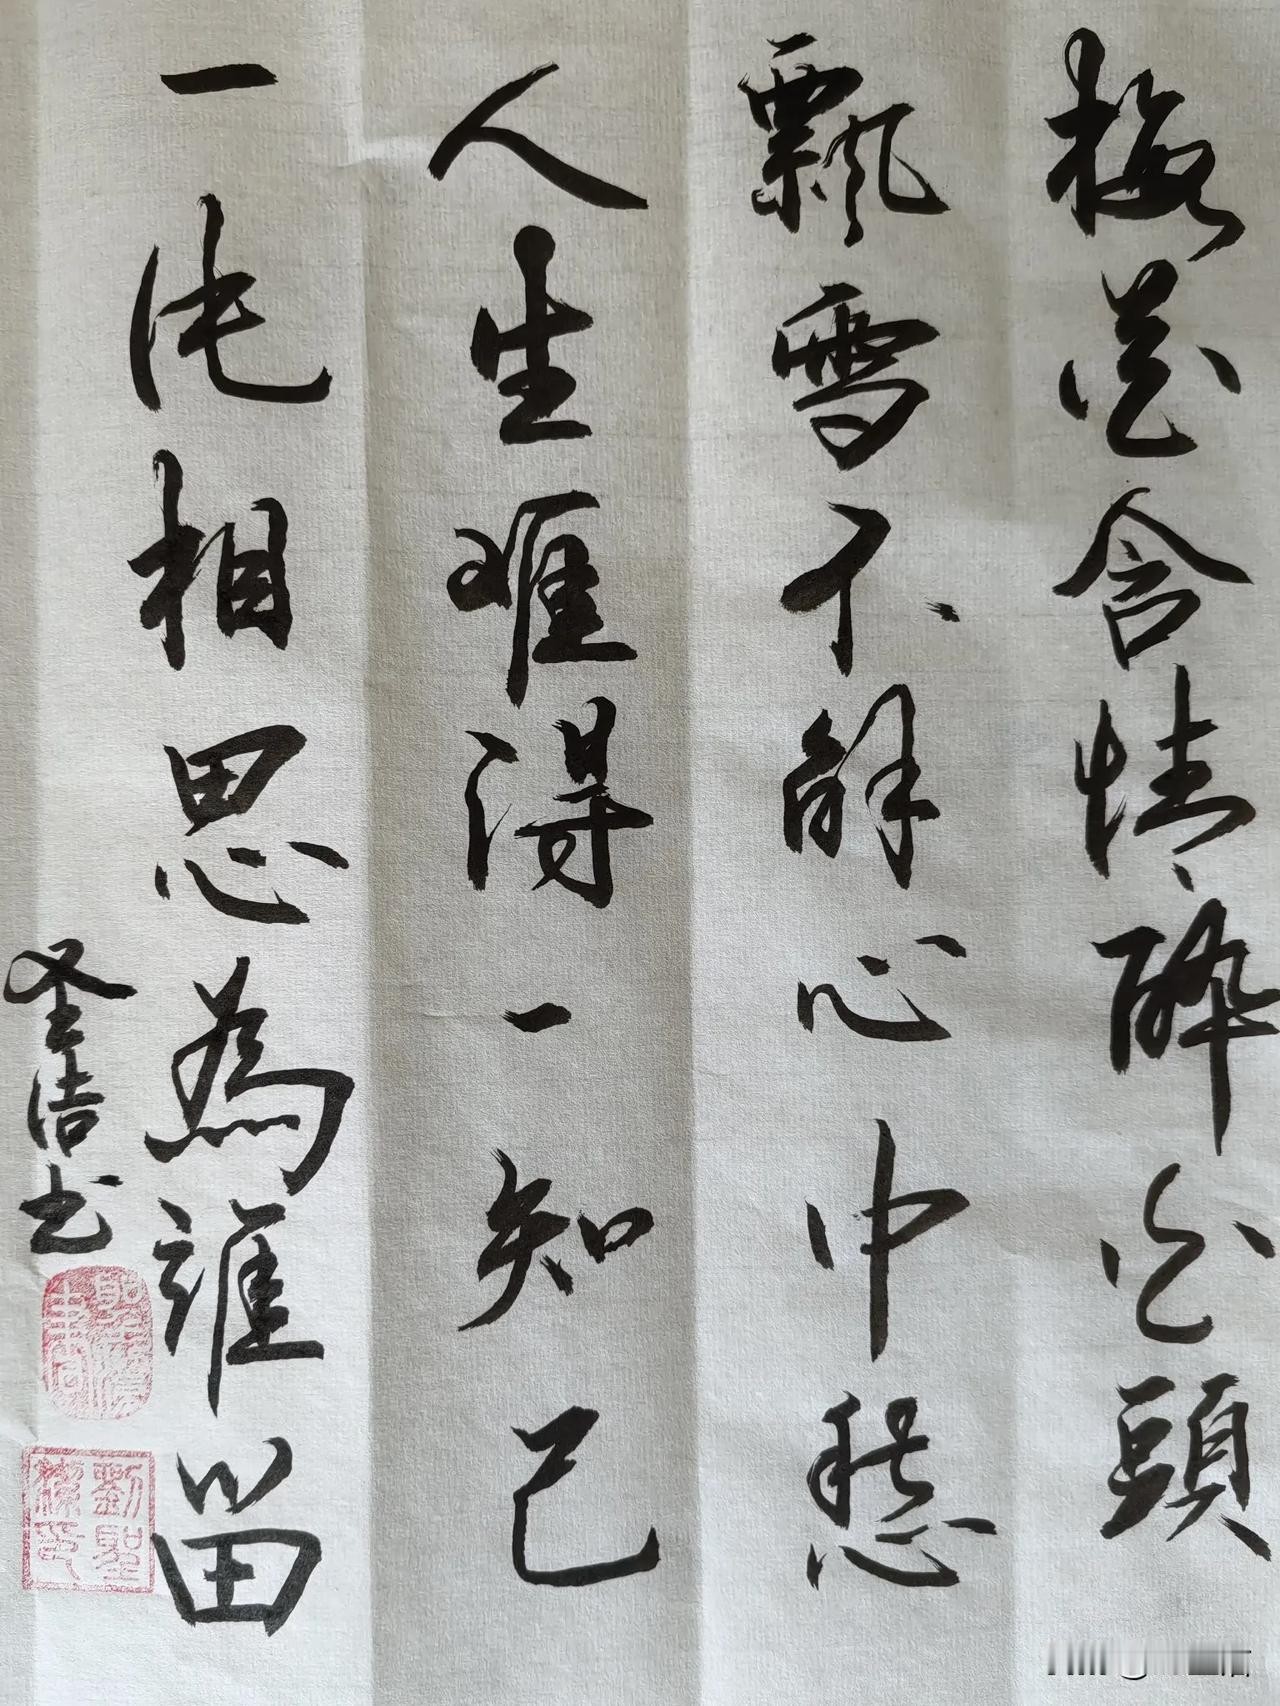 梅花含情醉白頭
飄雪不解心中愁
人生难得一知己
一比相思為誰留
圣洁书
劉聖潔印